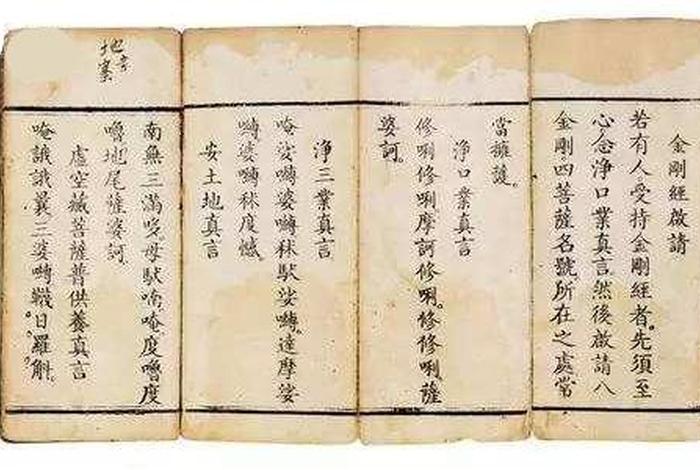 金剛經啟請
若有人受持金剛經者。先須至
心念淨口業真言然後啟請八
金剛。四菩薩名號所在之處常
當擁護。
淨口業真言
修唎修唎。摩訶修唎。修修唎。薩
婆訶。
淨三業真言
唵娑嚩婆嚩秫馱娑嚩。達摩娑
嚩婆嚩秫度憾
安土地真言
南無三滿哆母馱喃唵度嚕度
嚕地尾薩婆訶
虛空藏菩薩普供養真言
唵誐誐曩三婆嚩韈日羅斛。
地